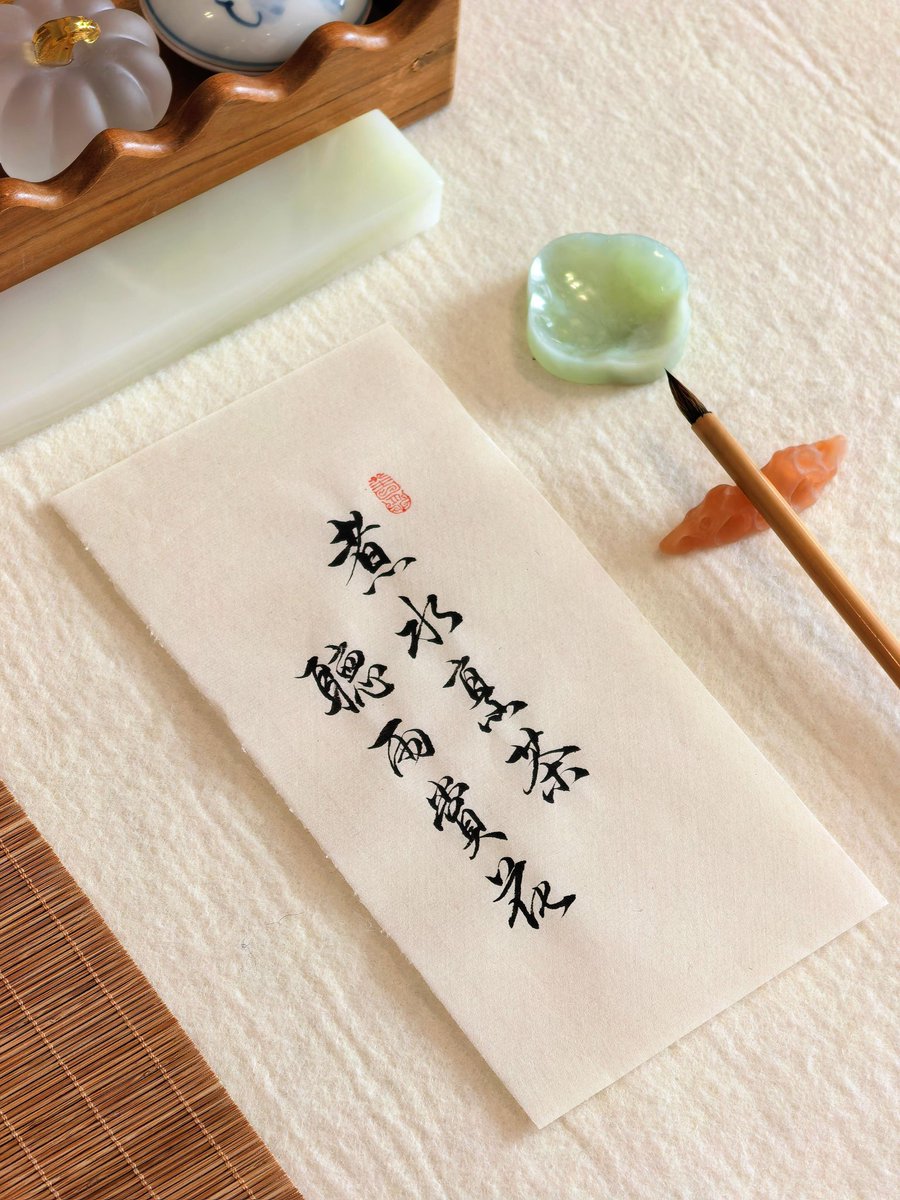 煮水烹茶
聽雨賞花